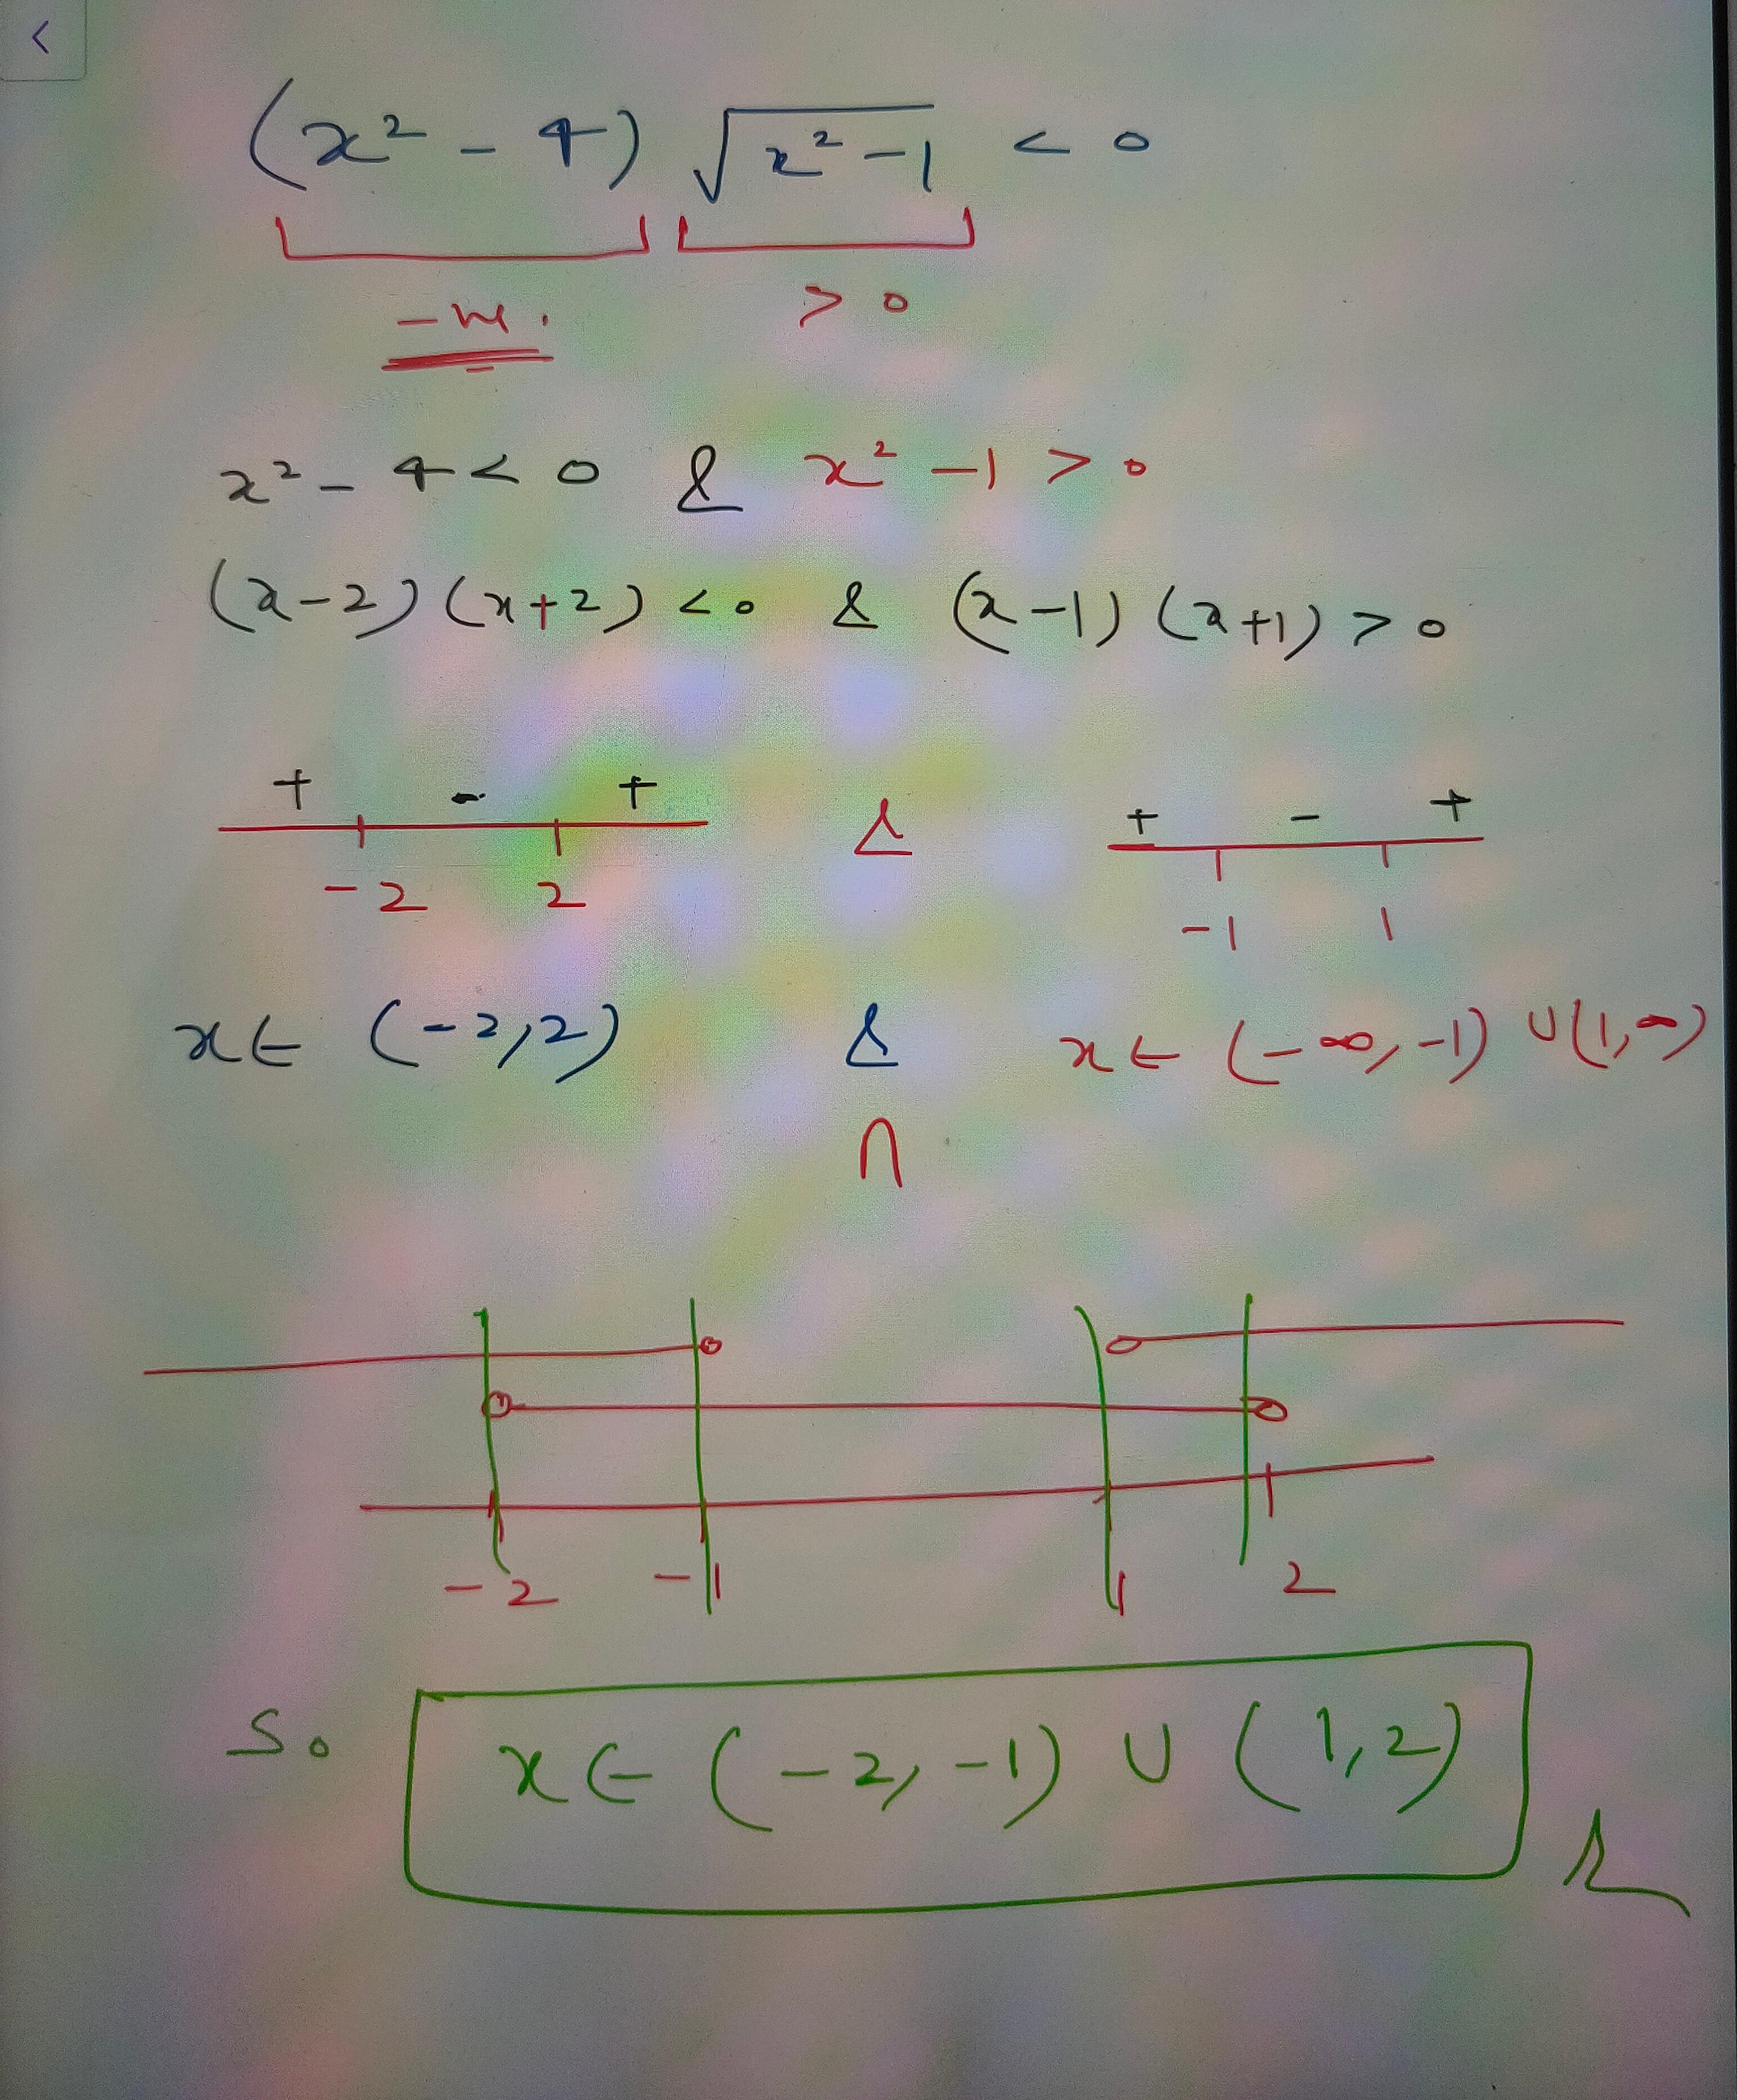 (x² - 4) √(x² - 1) < 0
-ve. > 0
x² - 4 < 0 & x² - 1 > 0
(x-2) (x+2) < 0 & (x-1) (x+1) > 0
+ - + & + - +
-2 2 -1 1
x ∈ (-2,2) & x ∈ (-∞,-1) ∪ (1,∞)
∩
-2 -1 1 2
So x ∈ (-2,-1) ∪ (1,2)